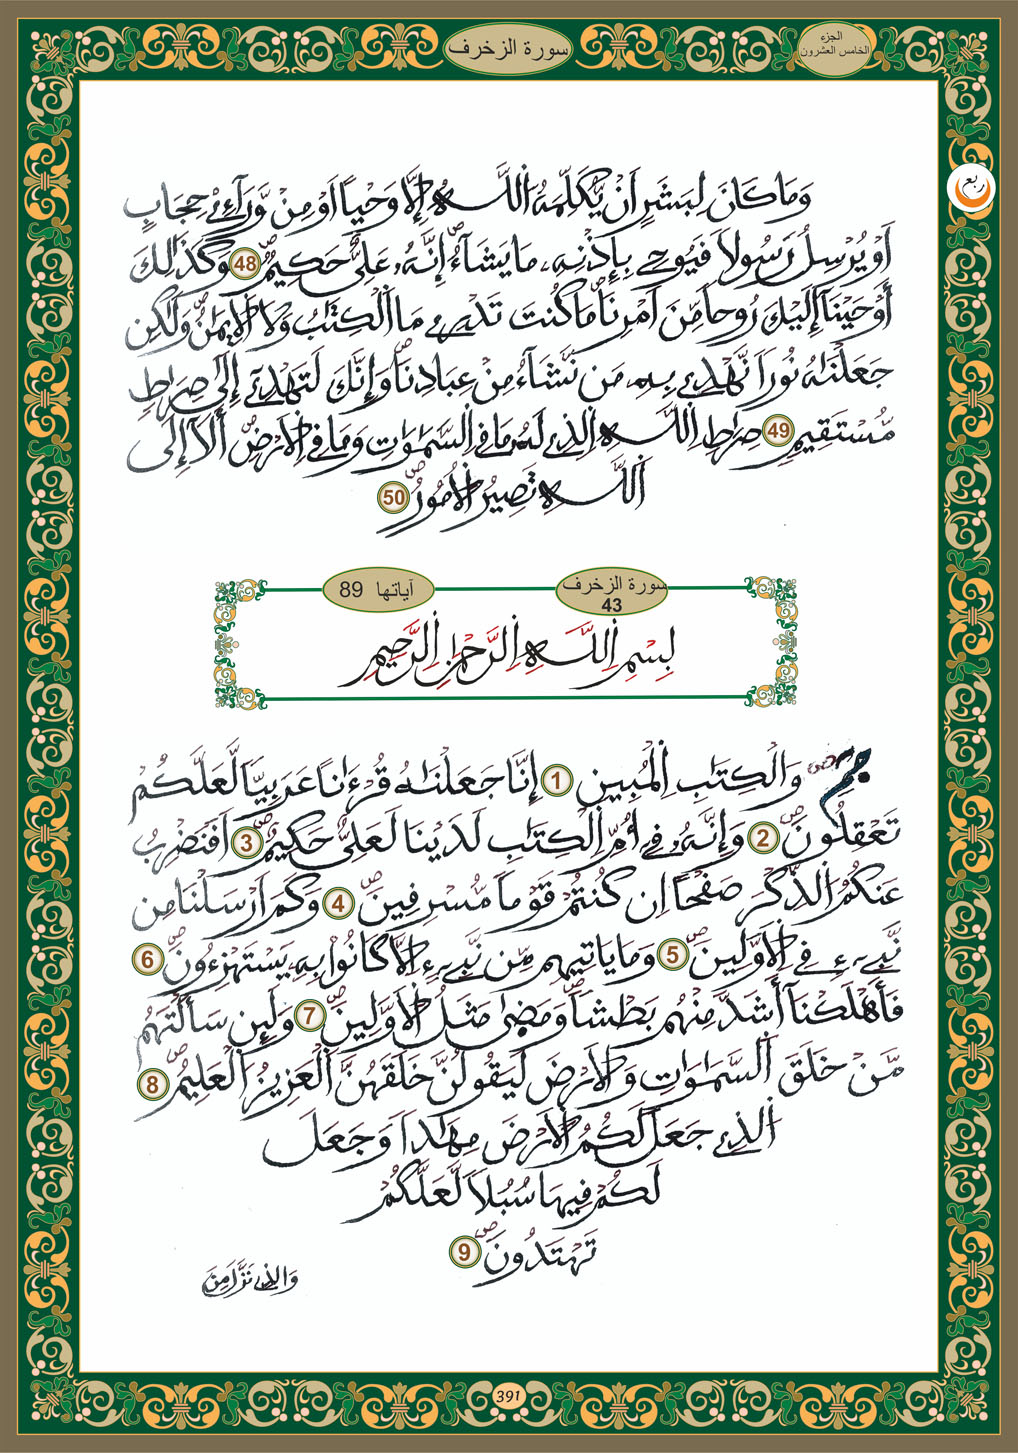 الجزء
الخامس العشرون
سورة الزخرف
ربع
وَمَا كَانَ لِبَشَرٍ اَنْ يُّكَلِّمَهُ اُ۬للَّهُ إِلَّا وَحْياً اَوْ مِنْ وَّرَآءِےْ حِجَابٍ
اَوْ يُرْسِلُ رَسُولاً فَيُوحِے بِإِذْنِهِۦ مَا يَشَآءُۖ إِنَّهُۥ عَلِيٌّ حَكِيمٌۖ 48 وَكَذَٰلِكَ
أَوْحَيْنَآ إِلَيْكَ رُوحاً مِّنَ اَمْرِنَاۖ مَا كُنتَ تَدْرِے مَا اَ۬لْكِتَٰبُ وَلَا اَ۬لِايمَٰنُۖ وَلَٰكِن
جَعَلْنَٰهُ نُوراً نَّهْدِے بِهِۦ مَن نَّشَآءُ مِنْ عِبَادِنَاۖ وَإِنَّكَ لَتَهْدِےٓ إِلَىٰ صِرَٰطٍ
مُّسْتَقِيمٍ 49 صِرَٰطِ اِ۬للَّهِ اِ۬لذِے لَهُۥ مَا فِے اِ۬لسَّمَٰوَٰتِ وَمَا فِے اِ۬لَارْضِۖ أَلَآ إِلَى
اَ۬للَّهِ تَصِيرُ اُ۬لُامُورُۖ 50
سورة الزخرف
43
آياتها 89
بِسْمِ اِ۬للَّهِ اِ۬لرَّحْمَٰنِ اِ۬لرَّحِيمِ
حٓمِٓۖ وَالْكِتَٰبِ اِ۬لْمُبِينِ 1 إِنَّا جَعَلْنَٰهُ قُرْءَٰناً عَرَبِيّاً لَّعَلَّكُمْ
تَعْقِلُونَۖ 2 وَإِنَّهُۥ فِےٓ أُمِّ اِ۬لْكِتَٰبِ لَدَيْنَا لَعَلِيٌّ حَكِيمٌۖ 3 اَفَنَضْرِبُ
عَنكُمُ اُ۬لذِّكْرَ صَفْحاً اِن كُنتُمْ قَوْماً مُّسْرِفِينَۖ 4 وَكَمَ اَرْسَلْنَا مِن
نَّبِےٓءٍ فِے اِ۬لَاوَّلِينَۖ 5 وَمَا يَاتِيهِم مِّن نَّبِےٓءٍ اِلَّا كَانُوا بِهِۦ يَسْتَهْزِءُونَۖ 6
فَأَهْلَكْنَآ أَشَدَّ مِنْهُم بَطْشاً وَمَضَىٰ مَثَلُ اُ۬لَاوَّلِينَۖ 7 وَلَئِن سَأَلْتَهُم
مَّنْ خَلَقَ اَ۬لسَّمَٰوَٰتِ وَالَارْضَ لَيَقُولُنَّ خَلَقَهُنَّ اَ۬لْعَزِيزُ اُ۬لْعَلِيمُۖ 8
اُ۬لذِے جَعَلَ لَكُمُ اُ۬لَارْضَ مِهَٰداً وَجَعَلَ
لَكُمْ فِيهَا سُبُلاً لَّعَلَّكُمْ
تَهْتَدُونَۖ 9
وَالذِے نَزَّلَ مِنَ
391